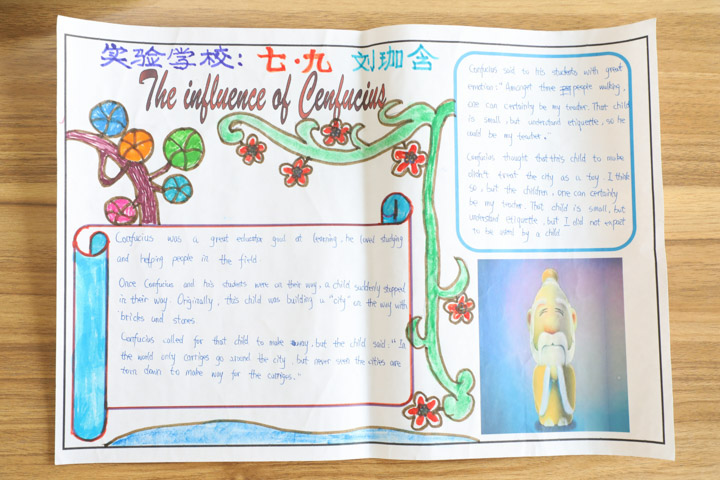 实验学校：七·九 刘珈含
The influence of Cenfucius
Confucius was a great educator goul at learning, he loved studying
and helping people in the field
Once Confucius and his students were on their way, a child suddenly stopped
in their way. Originally, this child was building a "city" on the way with
bricks and stones.
Confucius called for that child to make away, but the child said: "In
the world only carriges go around the city, but never seen the cities are
torn down to make way for the carriges."
Confucius said to his students with great
emotion: "Amongst three people walking,
one can certainly be my teacher. That child
is small, but understand etiquette, so he
could be my teacher."
Confucius thought that this child to make
didn't treat the city as a toy. I think
so, but the children, one can certainly
be my teacher. That child is small, but
understand etiquette, but I did not expect
to be used by a child